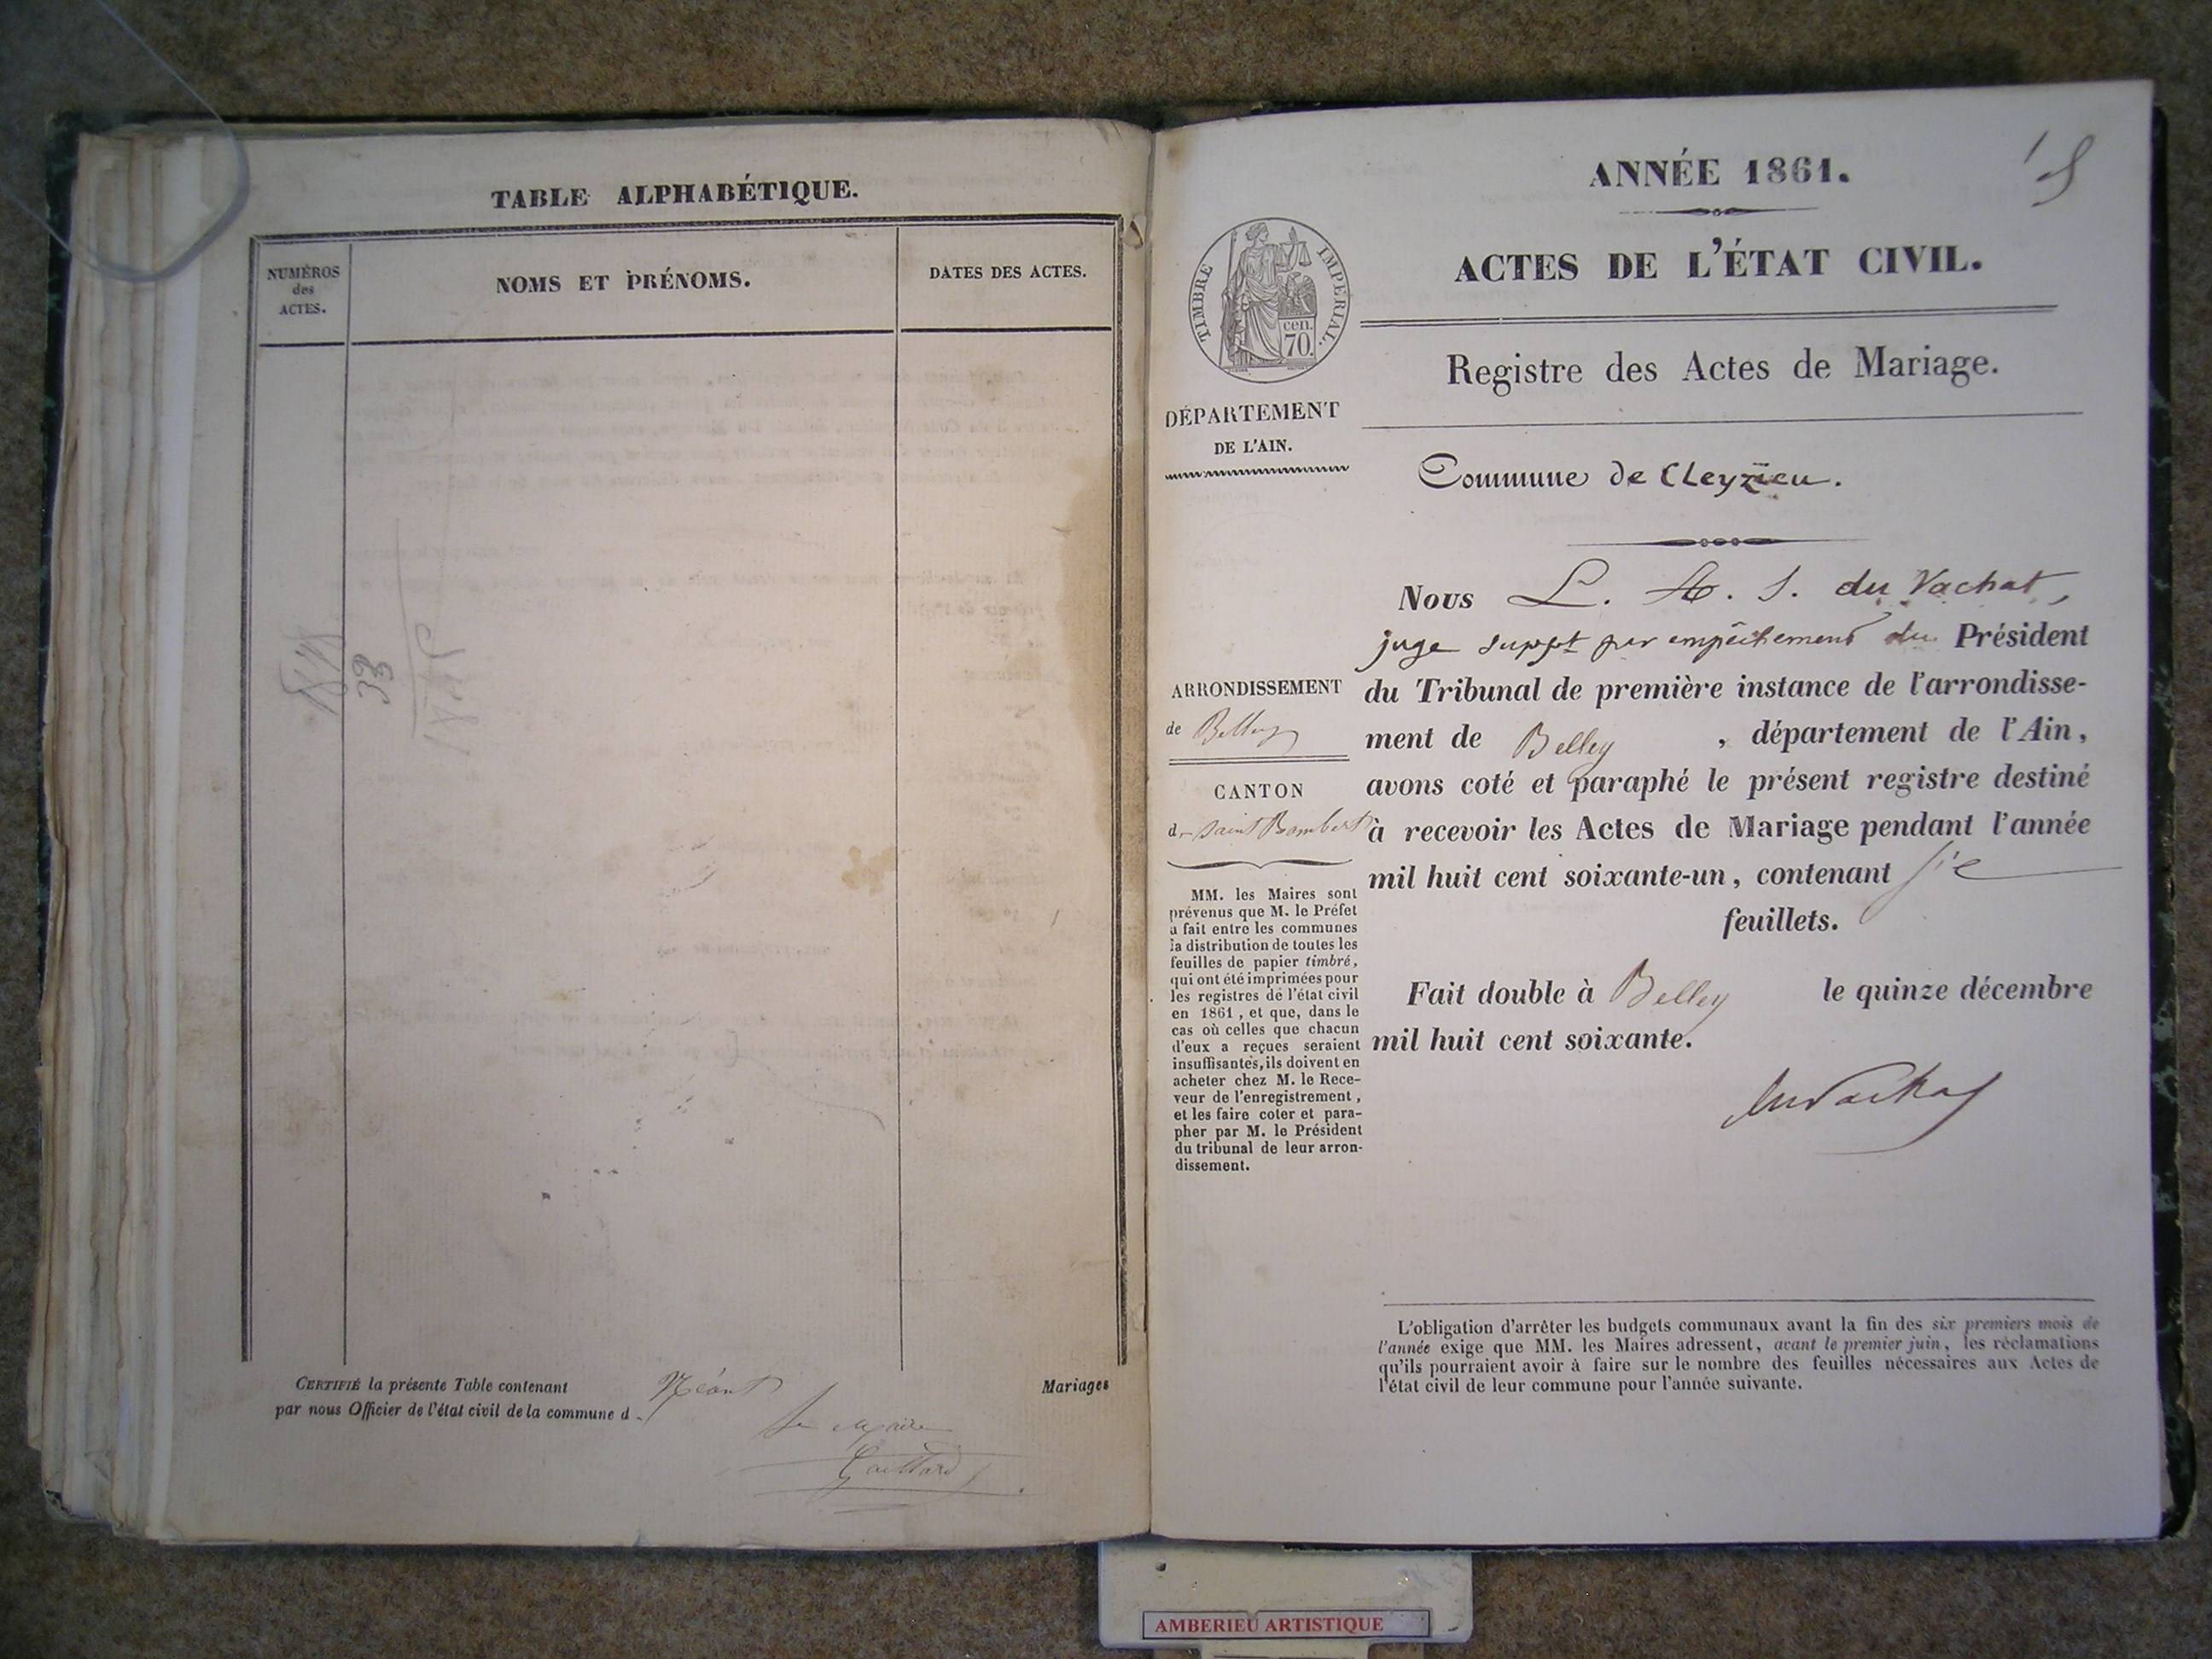 TABLE ALPHABÉTIQUE.
NUMÉROS
des
ACTES.
NOMS ET PRÉNOMS.
DATES DES ACTES.
33
CERTIFIÉ la présente Table contenant Néant Mariages
par nous Officier de l'état civil de la commune d
Le Maire
Gaillard
ANNÉE 1861.
ACTES DE L'ÉTAT CIVIL.
TIMBRE IMPÉRIAL.
cen.
70.
Registre des Actes de Mariage.
DÉPARTEMENT
DE L'AIN.
Commune de Cleyzieu.
Nous L. A. S. du Vachat,
juge suppt par empêchement du Président
du Tribunal de première instance de l'arrondisse-
ment de Belley , département de l'Ain,
avons coté et paraphé le présent registre destiné
à recevoir les Actes de Mariage pendant l'année
mil huit cent soixante-un, contenant six
feuillets.
Fait double à Belley le quinze décembre
mil huit cent soixante.
duVachat
ARRONDISSEMENT
de Belley
CANTON
de Saint Rambert
MM. les Maires sont
prévenus que M. le Préfet
a fait entre les communes
la distribution de toutes les
feuilles de papier timbré,
qui ont été imprimées pour
les registres de l'état civil
en 1861, et que, dans le
cas où celles que chacun
d'eux a reçues seraient
insuffisantes, ils doivent en
acheter chez M. le Rece-
veur de l'enregistrement,
et les faire coter et para-
pher par M. le Président
du tribunal de leur arron-
dissement.
L'obligation d'arrêter les budgets communaux avant la fin des six premiers mois de
l'année exige que MM. les Maires adressent, avant le premier juin, les réclamations
qu'ils pourraient avoir à faire sur le nombre des feuilles nécessaires aux Actes de
l'état civil de leur commune pour l'année suivante.
AMBERIEU ARTISTIQUE